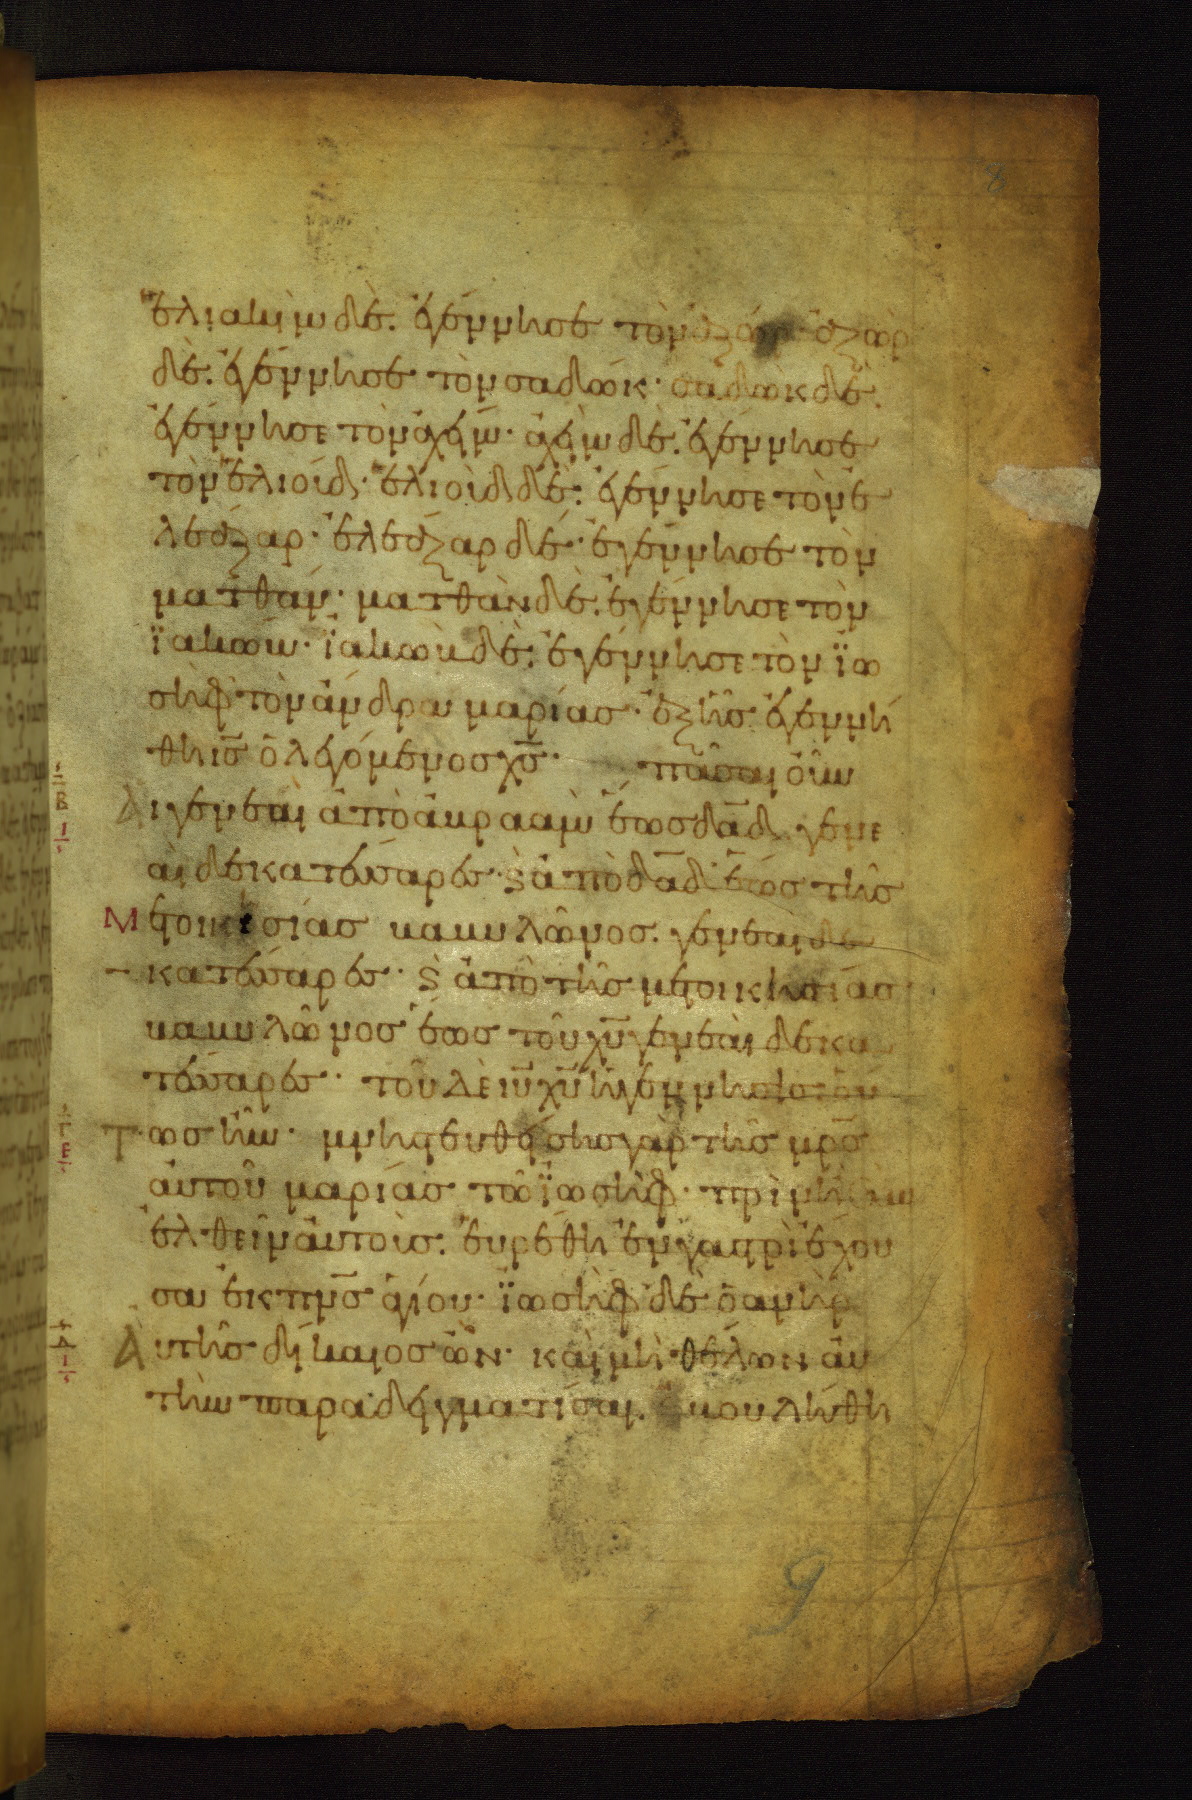 8
ἐλιακὶμ δὲ. ἐγέννησε τὸν ἀζώρ· ἀζὼρ
δὲ. ἐγέννησε τὸν σαδώκ· σαδὼκ δὲ.
ἐγέννησε τὸν ἀχήν· ἀχὴν δὲ. ἐγέννησε
τὸν ἐλιούδ· ἐλιοὺδ δὲ. ἐγέννησε τὸν ἐ
λεάζαρ· ἐλεάζαρ δὲ· ἐγέννησε τὸν
ματθάν· ματθὰν δὲ. ἐγέννησε τὸν
ϊακώβ· ϊακὼβ δὲ. ἐγέννησε τὸν ϊω
σὴφ τὸν ἄνδρα μαρίας· ἐξ ἧς ἐγεννή
θη ι̅ς̅ ὁ λεγόμενος χ̅ς̅· πᾶσαι οὖν
Αι γενεαὶ ἀπὸ ἀβραὰμ ἕως δ̅α̅δ̅ γενε
αὶ δεκατέσσαρες· ϗ ἀπὸ δ̅α̅δ̅ ἕως τῆς
Μετοικεσίας βαβυλῶνος. γενεαὶ δε
κατέσσαρες· ϗ ἀπὸ τῆς μετοικησίας
βαβυλῶνος ἕως τοῦ χ̅υ̅ γενεαὶ δεκα
τέσσαρες· τοῦ δὲ ι̅υ̅ χ̅υ̅ ἡ γέννησις οὕ
Τως ἦν· μνηστευθείσης γὰρ τῆς μ̅ρ̅ς̅
αὐτοῦ μαρίας τῶ ϊωσήφ· πρὶν ἢ συν
ελθεῖν αὐτοὺς. εὑρέθη ἐν γαστρὶ ἔχου
σα ἐκ π̅ν̅ς̅ ἁγίου· ϊωσὴφ δὲ ὁ ἀνὴρ
Αὐτῆς δίκαιος ὢν· καὶ μὴ θέλων αὐ
τὴν παραδειγματίσαι. ἐβουλήθη
9